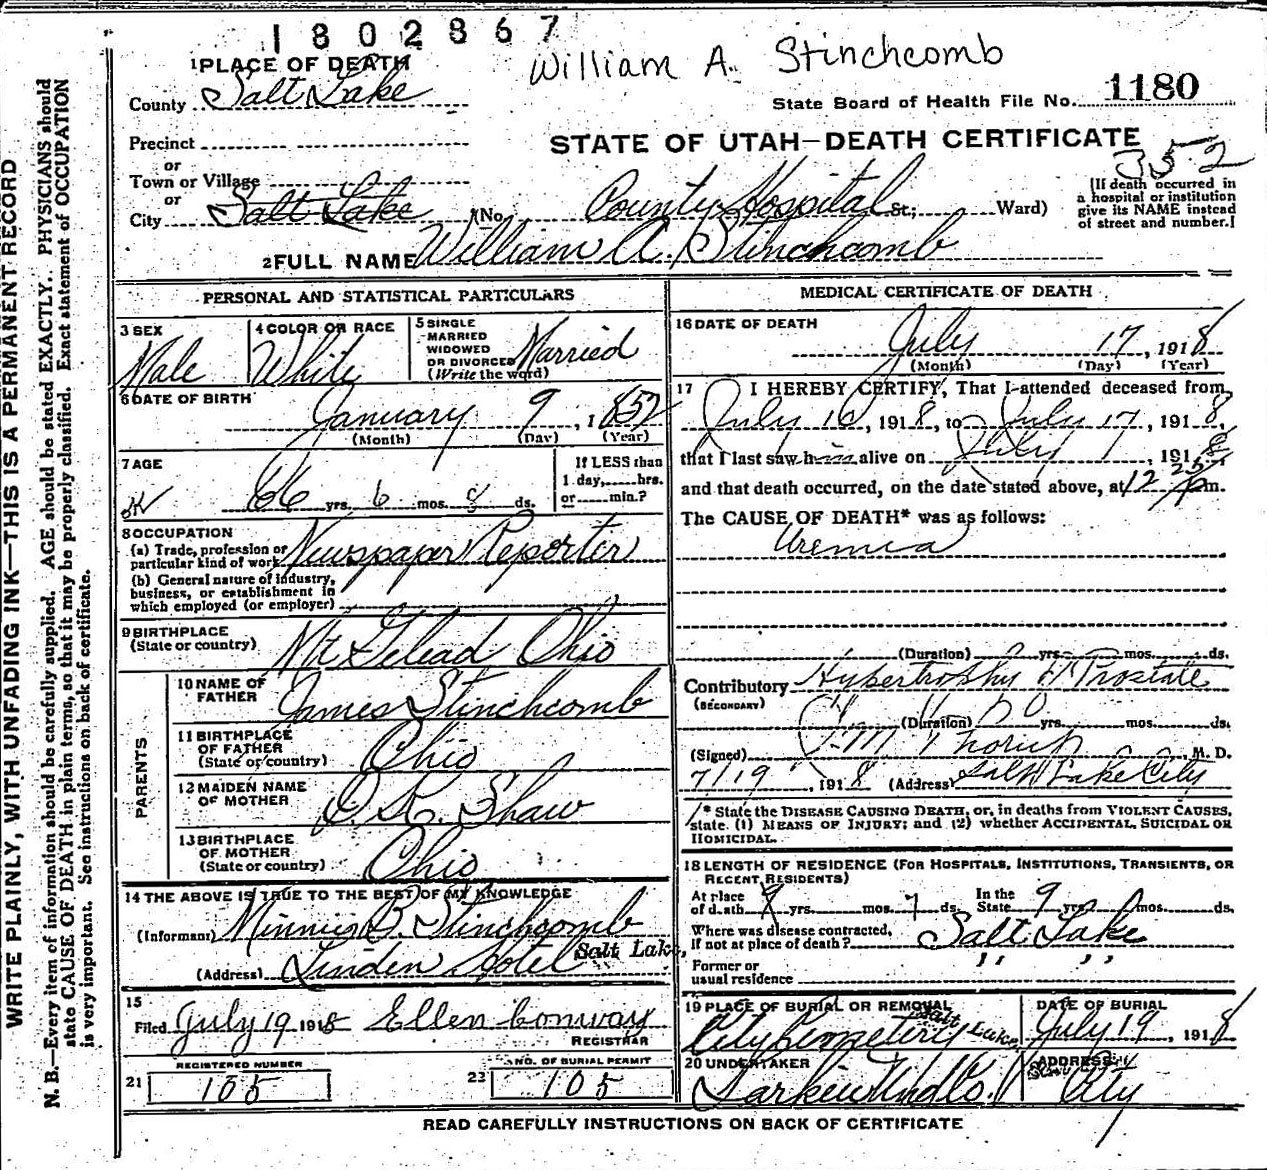 1802867
William A. Stinchcomb
1 PLACE OF DEATH
County Salt Lake
State Board of Health File No. 1180
Precinct
STATE OF UTAH—DEATH CERTIFICATE
352
or
Town or Village
or
City Salt Lake (No. County Hospital St.; Ward)
[If death occurred in a hospital or institution give its NAME instead of street and number.]
2 FULL NAME William A. Stinchcomb
PERSONAL AND STATISTICAL PARTICULARS
3 SEX Male
4 COLOR OR RACE White
5 SINGLE MARRIED WIDOWED OR DIVORCED (Write the word) Married
6 DATE OF BIRTH
January 9, 1852
(Month) (Day) (Year)
7 AGE
If LESS than 1 day, hrs. or min.?
OK 66 yrs. 6 mos. 8 ds.
8 OCCUPATION
(a) Trade, profession or particular kind of work Newspaper Reporter
(b) General nature of industry, business, or establishment in which employed (or employer)
9 BIRTHPLACE (State or country) Mt Gilead Ohio
PARENTS
10 NAME OF FATHER James Stinchcomb
11 BIRTHPLACE OF FATHER (State or country) Ohio
12 MAIDEN NAME OF MOTHER Shaw
13 BIRTHPLACE OF MOTHER (State or country) Ohio
14 THE ABOVE IS TRUE TO THE BEST OF MY KNOWLEDGE
(Informant) Minnie B. Stinchcomb
(Address) Linden Hotel Salt Lake,
15
Filed July 19 1918 Ellen Conway
REGISTRAR
21 REGISTERED NUMBER 105
22 NO. OF BURIAL PERMIT 105
MEDICAL CERTIFICATE OF DEATH
16 DATE OF DEATH
July 17, 1918
(Month) (Day) (Year)
17 I HEREBY CERTIFY, That I attended deceased from
July 16, 1918, to July 17, 1918,
that I last saw him alive on July 1, 1918,
and that death occurred, on the date stated above, at 12 25 Pm.
The CAUSE OF DEATH* was as follows:
Uremia
(Duration) yrs. mos. ds.
Contributory Hypertrophy of Prostate
(SECONDARY)
(Duration) yrs. mos. ds.
(Signed) M. D.
7/19, 1918 (Address) Salt Lake City
* State the DISEASE CAUSING DEATH, or, in deaths from VIOLENT CAUSES,
state (1) MEANS OF INJURY; and (2) whether ACCIDENTAL, SUICIDAL OR
HOMICIDAL.
18 LENGTH OF RESIDENCE (FOR HOSPITALS, INSTITUTIONS, TRANSIENTS, OR
RECENT RESIDENTS)
At place of death yrs. mos. 7 ds. In the State 9 yrs. mos. ds.
Where was disease contracted, if not at place of death? Salt Lake
Former or usual residence " "
19 PLACE OF BURIAL OR REMOVAL City Cemetery Salt Lake
DATE OF BURIAL July 19, 1918
20 UNDERTAKER Larkin Und Co.
ADDRESS City
READ CAREFULLY INSTRUCTIONS ON BACK OF CERTIFICATE
WRITE PLAINLY, WITH UNFADING INK—THIS IS A PERMANENT RECORD
N. B.—Every item of information should be carefully supplied. AGE should be stated EXACTLY. PHYSICIANS should
state CAUSE OF DEATH in plain terms, so that it may be properly classified. Exact statement of OCCUPATION
is very important. See instructions on back of certificate.